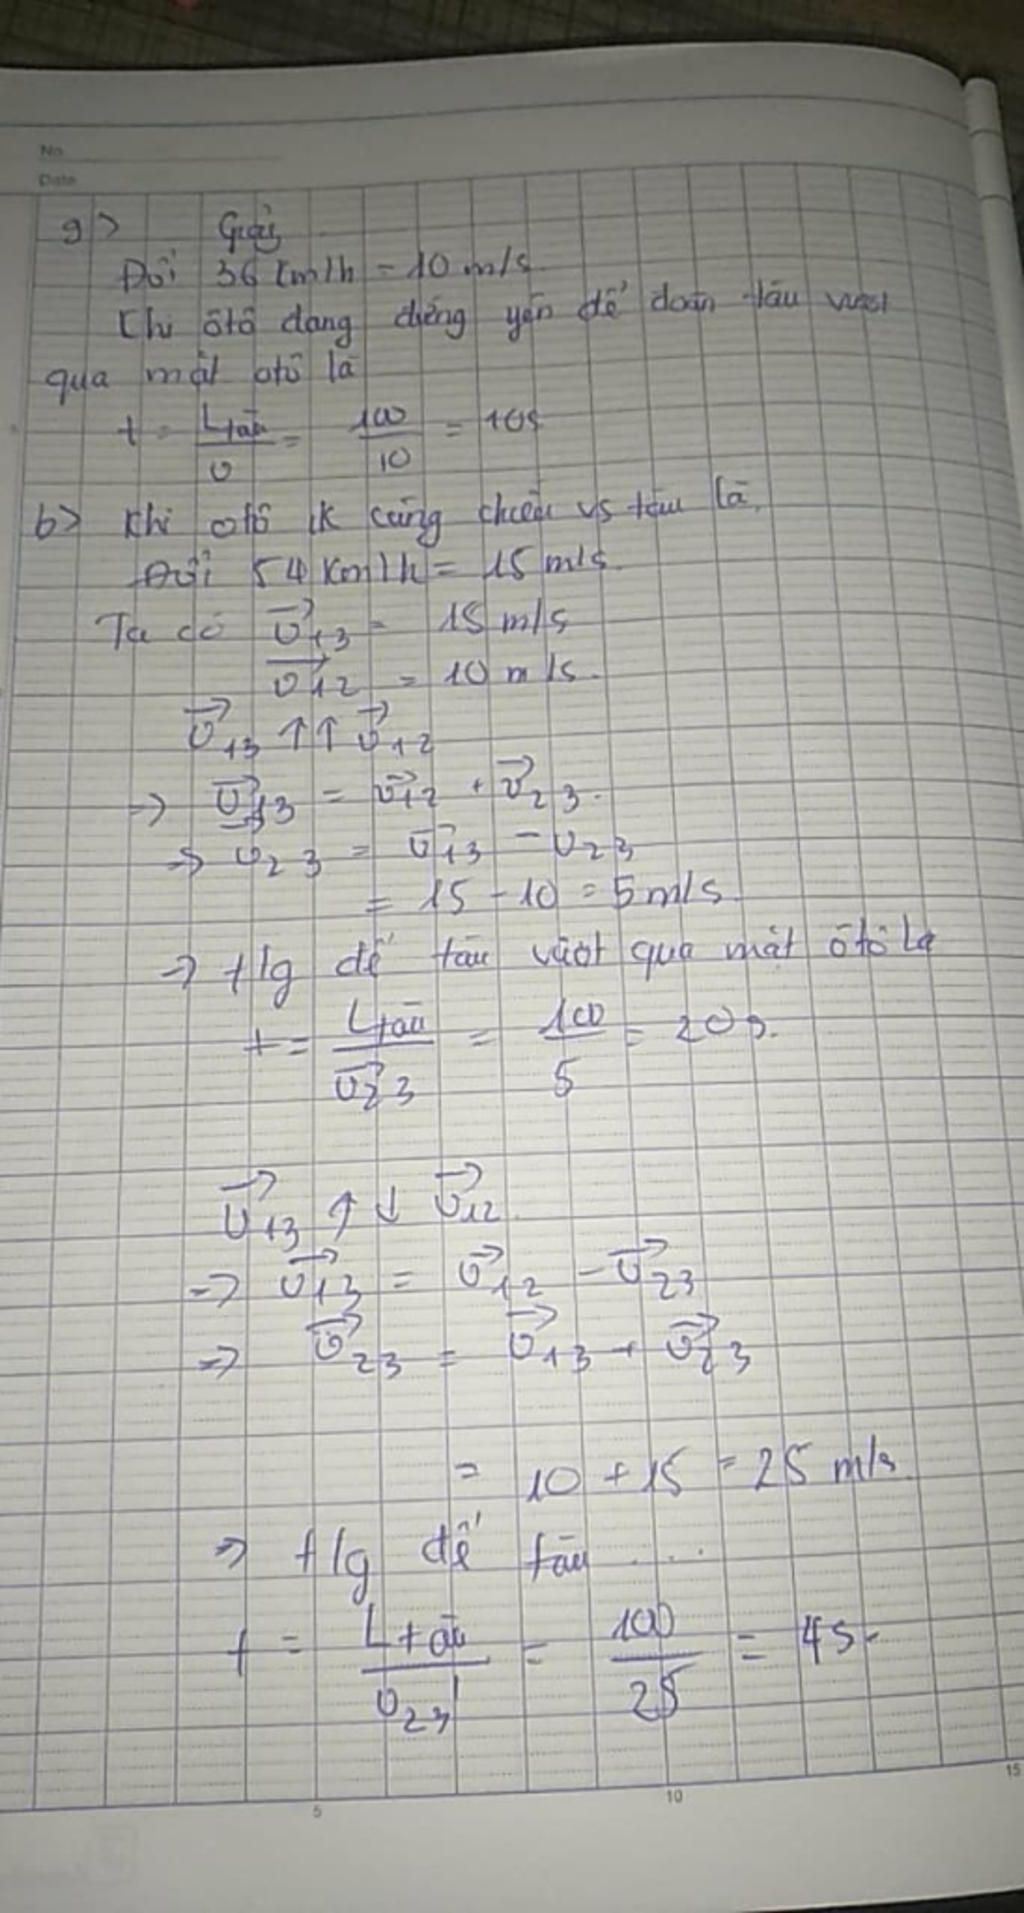 No.
Date
a> Giải
Đổi 36 km/h = 10 m/s
Khi ôtô đang đứng yên để đoàn tàu vượt
qua mặt ôtô là
t = Ltàu/v = 100/10 = 10s
b> Khi ôtô đk cùng chiều vs tàu là
Đổi 54 km/h = 15 m/s.
Ta có v⃗13 = 15 m/s
v⃗12 = 10 m/s.
v⃗13 ↑↑ v⃗12
=> v⃗13 = v⃗12 + v⃗23.
=> v23 = v⃗13 - v23
= 15 - 10 = 5 m/s.
=> tlg để tàu vượt qua mặt ôtô là
t = Ltàu/v⃗23 = 100/5 = 20s.
v⃗13 ↑↓ v⃗12.
=> v⃗13 = v⃗12 - v⃗23
=> v⃗23 = v⃗13 + v⃗23
= 10 + 15 = 25 m/s.
=> tlg để tàu ....
t = Ltàu/v23' = 100/25 = 4s.
5 10 15